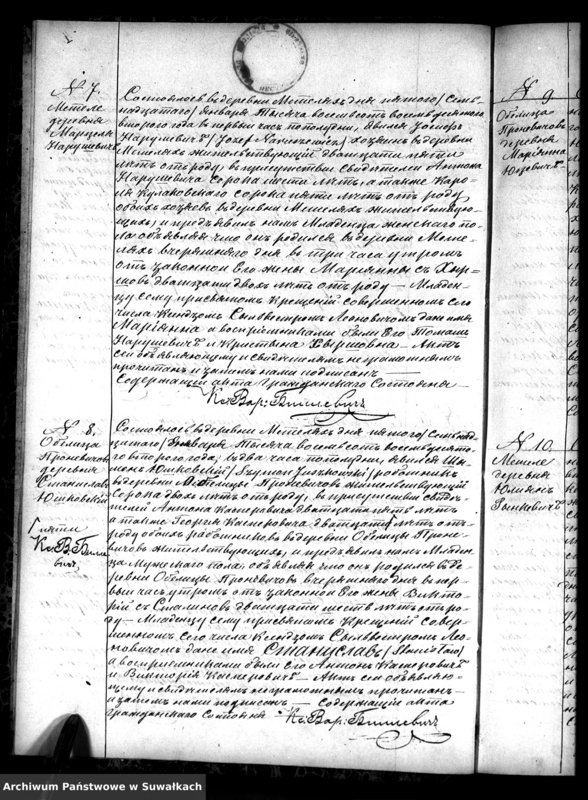 N 7.
Метеле
деревня
Нарушевичъ
Состоялось въ деревни Метеляхъ дня пятого / Сем-
надцатаго / Января Тысяча восемьсотъ восемьдесятъ
второго года въ первый часъ пополудни, явился Іосифъ
Нарушевичъ / Józef Naruszewicz / въ деревни
Метеляхъ жительствующій двадцати пяти
лѣтъ отъ роду, въ присутствіи Свидѣтелей Антона
Нарушевича сорока шести лѣтъ, а также Каро-
ля Кулаковского сорока пяти лѣтъ отъ роду,
обоихъ въ деревни Метеляхъ жительствую-
щихъ, и предъявилъ намъ Младенца женского по-
ла объявляя что онъ родился въ деревни Мете-
ляхъ вчерашнего дня въ три часа утромъ
отъ законной Его жены Маріянны съ
двадцати двухъ лѣтъ отъ роду — Младен-
цу сему при святомъ Крещеніи совершенномъ сего
числа Ксендзомъ Сильвестромъ Леоновичомъ дано имя
Маріянна а воспріемниками были Его Томашъ
Нарушевичъ и Кристына — Актъ
сей объявляющему и свидѣтелямъ неграмотнымъ
прочитанъ и нами подписанъ —
Содержащій акта Гражданского Состоянія —
Кс. Вар: Бишевичъ
N 8.
Облица
Проневичовъ
деревня
Станиславъ
Юшковскій
Кс. В. Би-
шевичъ
Состоялось въ деревни Метеляхъ дня пятого / Семнад-
цатаго / Января Тысяча восемьсотъ восемьдесятъ
второго года, въ два часа пополудни, явился Шы-
монъ Юшковскій / Szymon Juszkowski / работникъ
въ деревни Облицы Проневичовъ жительствующій
сорока двухъ лѣтъ отъ роду, въ присутствіи свидѣ-
телей Антона Касперовича двадцати пяти лѣтъ
а также Георгія Касперовича двадцати лѣтъ отъ
роду обоихъ работниковъ въ деревни Облицы Проне-
вичовъ жительствующихъ, и предъявилъ намъ Младен-
ца Мужеского пола, объявляя что онъ родился въ де-
ревни Облицы Проневичовъ вчерашнего дня въ пер-
вый часъ утромъ отъ законной Его жены Викто-
ріи съ двадцати шести лѣтъ отъ ро-
ду — Младенцу сему при святомъ Крещеніи совер-
шенномъ Сего числа Ксендзомъ Сильвестромъ Лео-
новичомъ дано имя Станиславъ / Stanisław /
а воспріемниками были Его Антонъ Касперовичъ
и Викторія Касперовичъ — Актъ сей объявляю-
щему и свидѣтелямъ неграмотнымъ прочитанъ —
и нами подписанъ — Содержащій акта
Гражданского Состоянія — Кс. Вар: Бишевичъ
N 9
Облица
Проневичовъ
деревня
Маріянна
N 10.
Метеле
деревня
Юліянъ
Archiwum Państwowe w Suwałkach